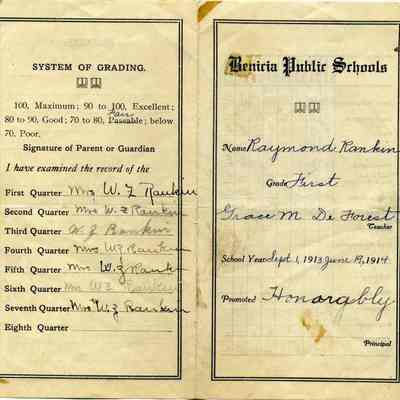 SYSTEM OF GRADING.
100, Maximum; 90 to 100, Excellent;
Fair
80 to 90, Good; 70 to 80, Passable; below
70, Poor.
Signature of Parent or Guardian
I have examined the record of the
First Quarter Mrs W. Z Rankin
Second Quarter Mrs W. Z Rankin
Third Quarter W. Z Rankin
Fourth Quarter Mrs WZ Rankin
Fifth Quarter Mrs W. Z Rankin
Sixth Quarter Mrs W Z Rankin
Seventh Quarter Mrs W Z Rankin
Eighth Quarter
Benicia Public Schools
Name Raymond Rankin
Grade First
Grace M. De Forest
Teacher
School Year Sept 1, 1913 June 19, 1914
Promoted Honorably
Principal